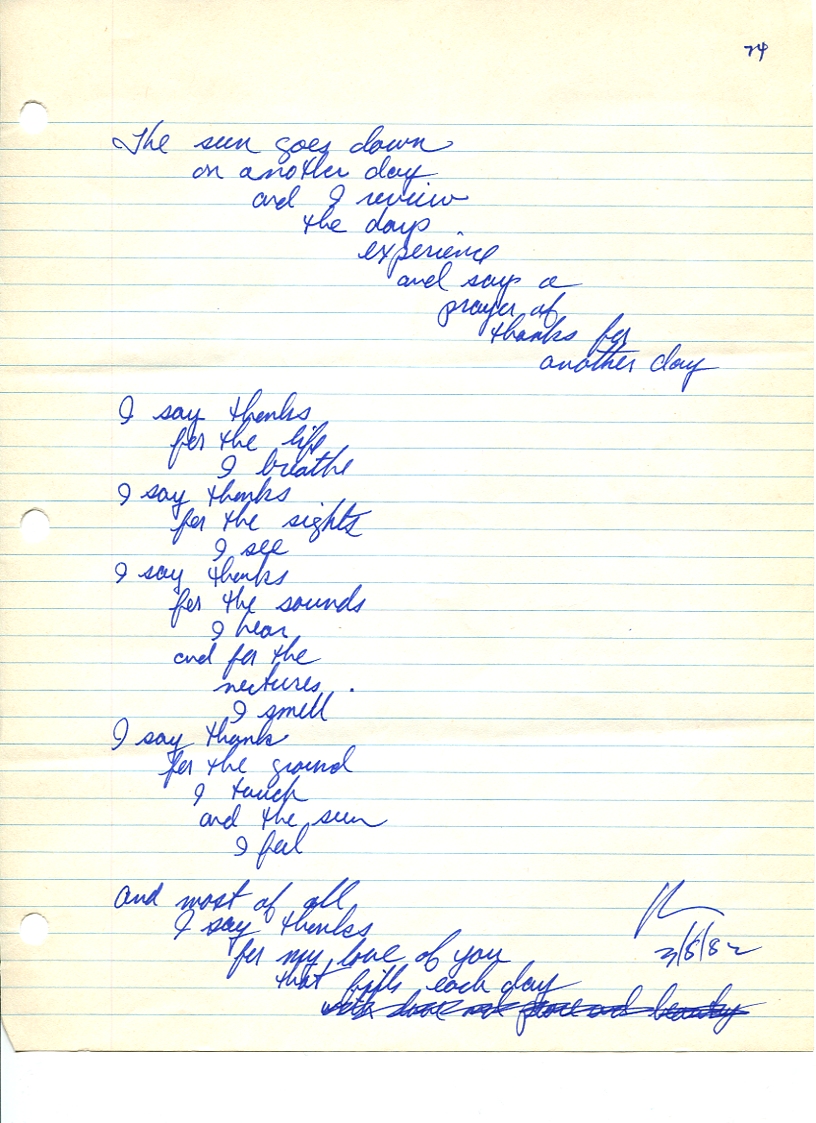 74
The sun goes down
on another day
and I review
the days
experience
and say a
prayer of
thanks for
another day
I say thanks
for the life
I breathe
I say thanks
for the sights
I see
I say thanks
for the sounds
I hear
and for the
I smell
I say thanks
for the ground
I touch
and the sun
I feel
And most of all
I say thanks
for my love of you
that fills each day
with love and peace and beauty
3/5/82